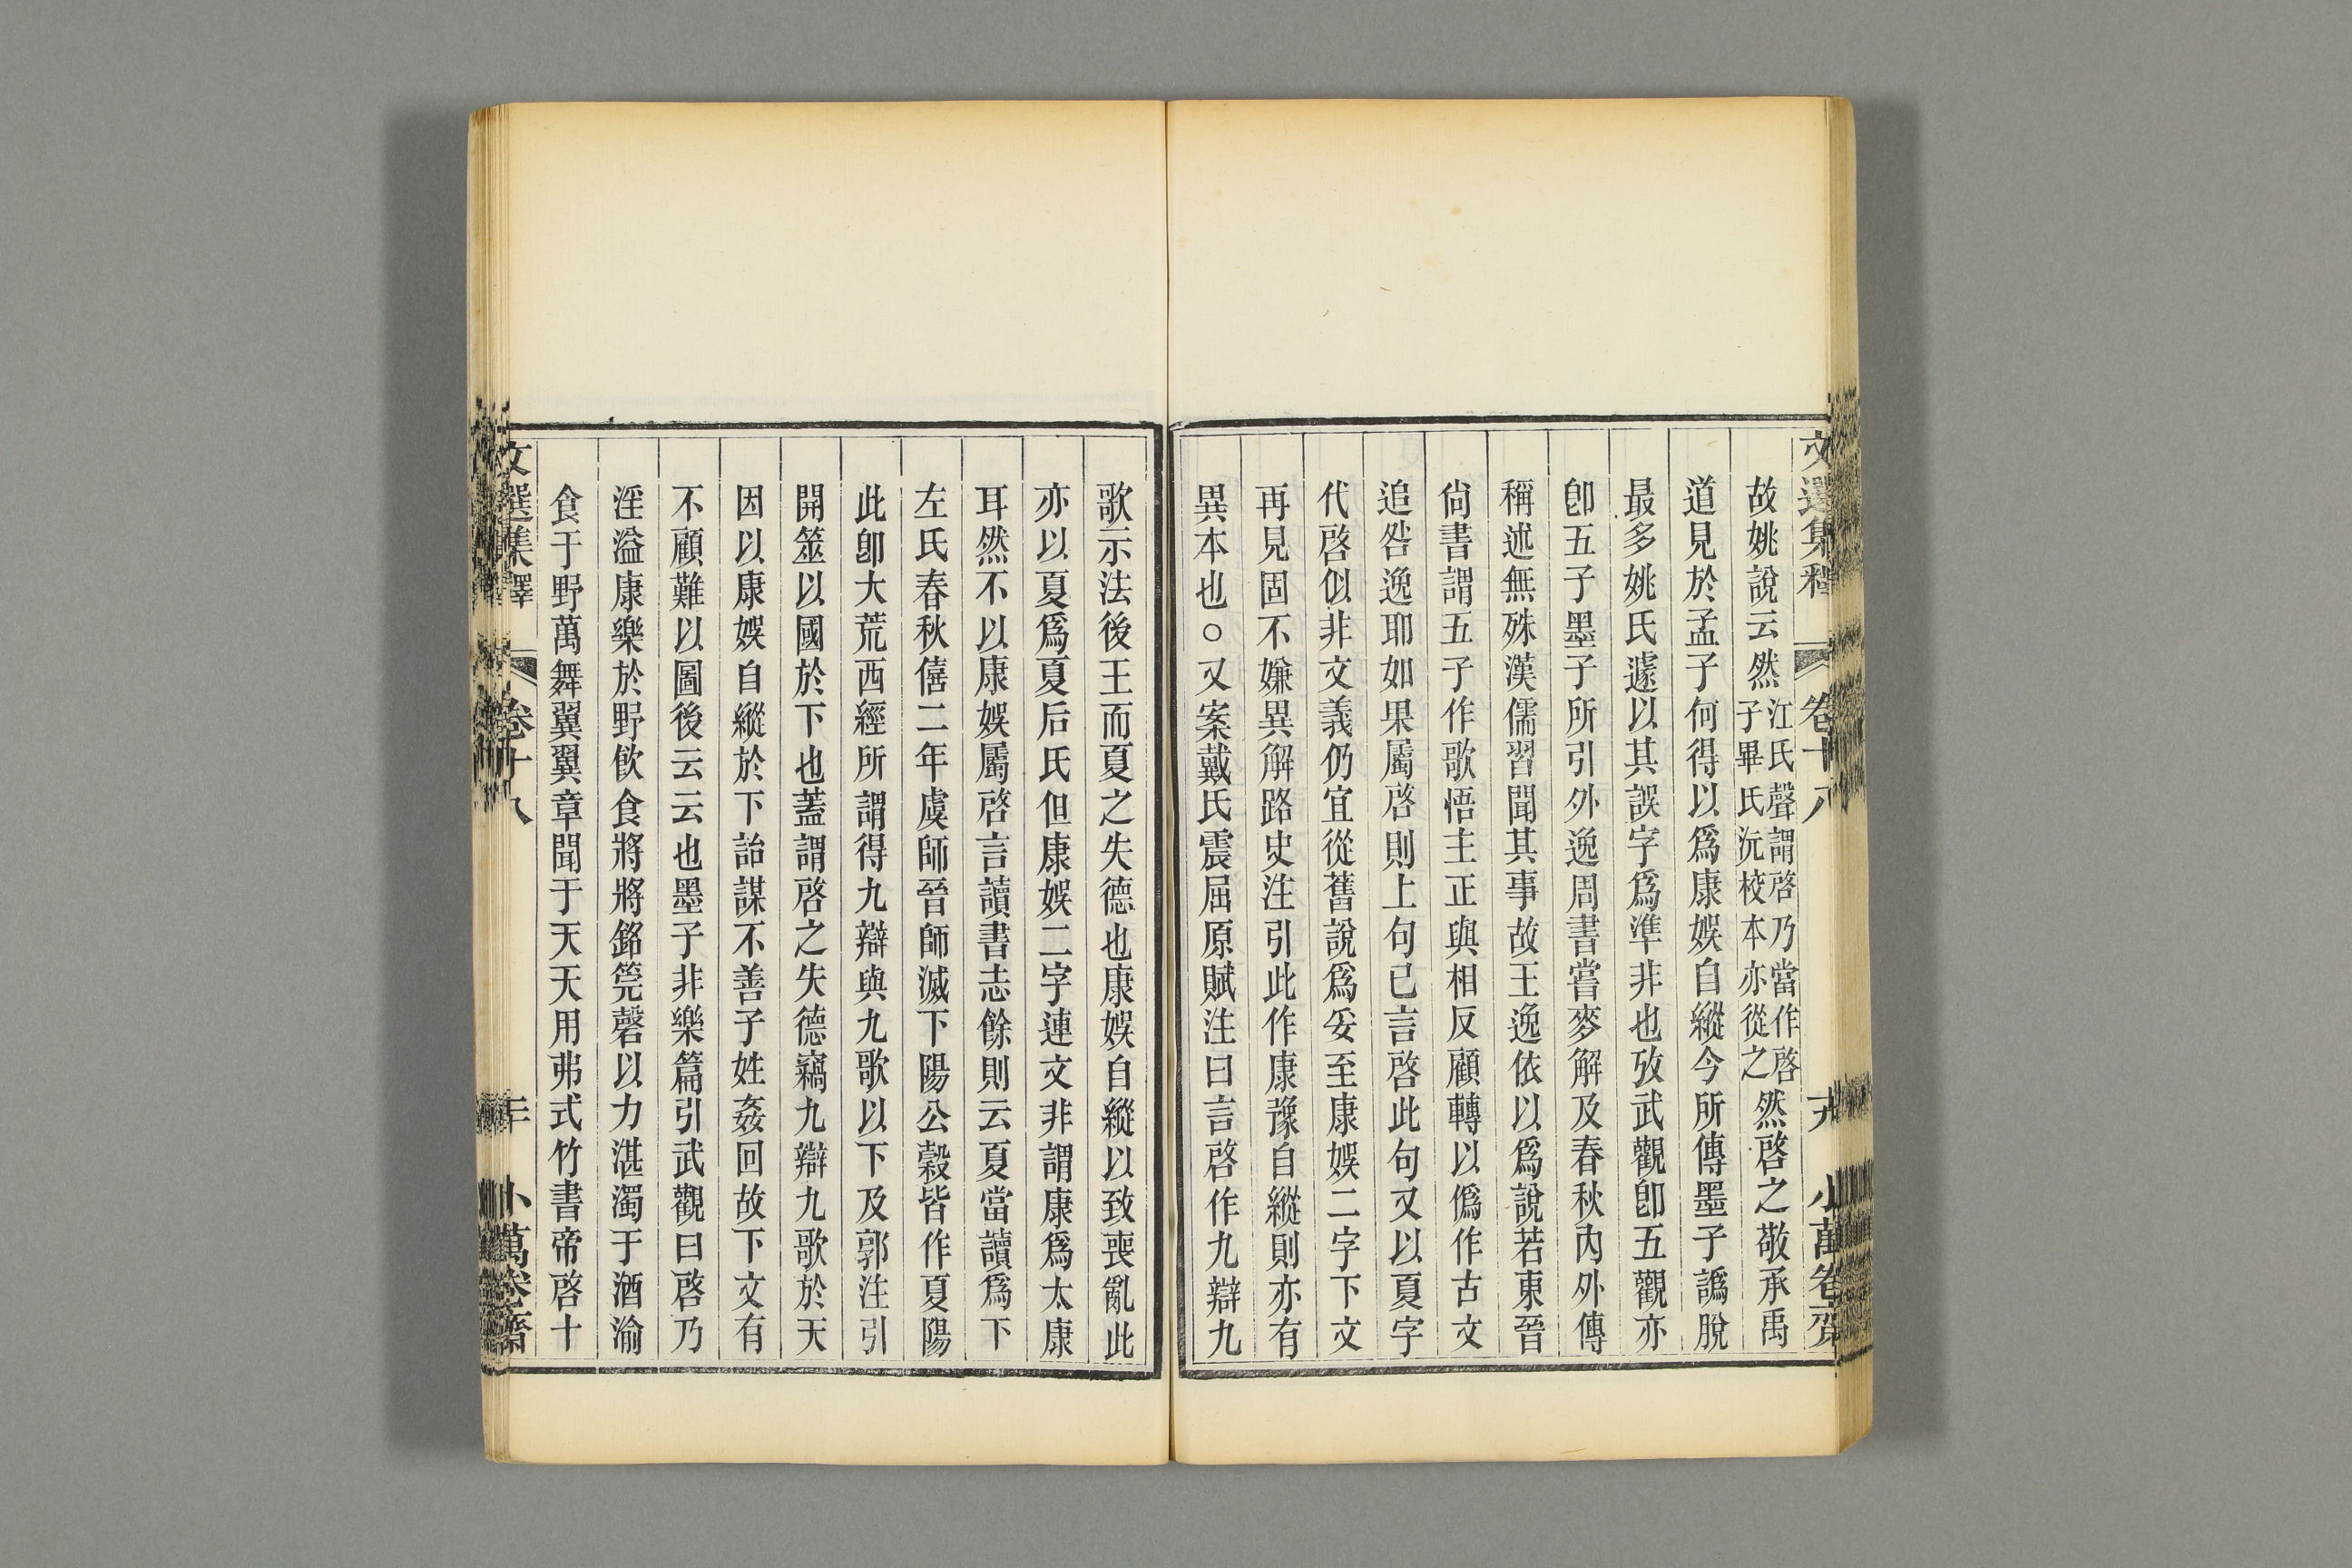 文選集釋 卷十八 十九 小萬卷齋
故姚說云然江氏聲謂啓乃當作啓子畢氏沅校本亦從之然啓之敬承禹
道見於孟子何得以爲康娛自縱今所傳墨子譌脫
最多姚氏遽以其誤字爲準非也攷武觀卽五觀亦
卽五子墨子所引外逸周書嘗麥解及春秋內外傳
稱述無殊漢儒習聞其事故王逸依以爲說若東晉
尙書謂五子作歌悟主正與相反顧轉以僞作古文
追咎逸耶如果屬啓則上句已言啓此句又以夏字
代啓似非文義仍宜從舊說爲妥至康娛二字下文
再見固不嫌異解路史注引此作康豫自縱則亦有
異本也○又案戴氏震屈原賦注曰言啓作九辯九
歌示法後王而夏之失德也康娛自縱以致喪亂此
亦以夏爲夏后氏但康娛二字連文非謂康爲太康
耳然不以康娛屬啓言讀書志餘則云夏當讀爲下
左氏春秋僖二年虞師晉師滅下陽公穀皆作夏陽
此卽大荒西經所謂得九辯與九歌以下及郭注引
開筮以國於下也蓋謂啓之失德竊九辯九歌於天
因以康娛自縱於下詒謀不善子姓姦回故下文有
不顧難以圖後云云也墨子非樂篇引武觀曰啓乃
淫溢康樂於野飮食將將銘筦磬以力湛濁于酒渝
食于野萬舞翼翼章聞于天天用弗式竹書帝啓十
文選集釋 卷十八 二十 小萬卷齋